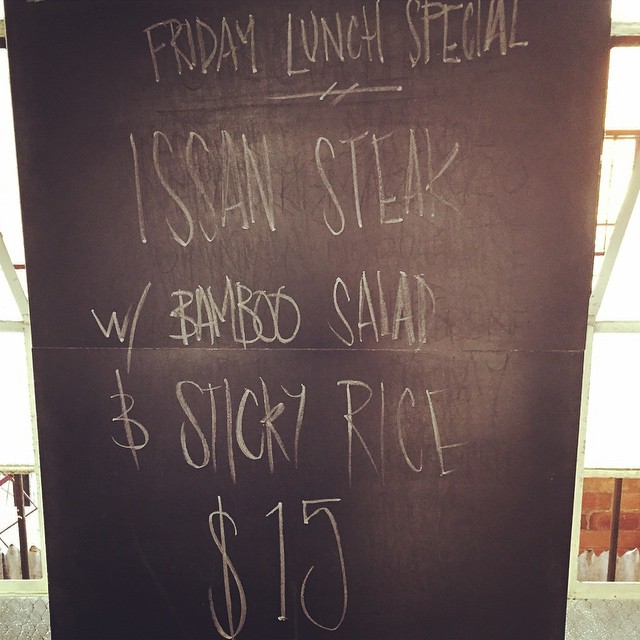 FRIDAY LUNCH SPECIAL
ISSAN STEAK
W/ BAMBOO SALAD
& STICKY RICE
$15